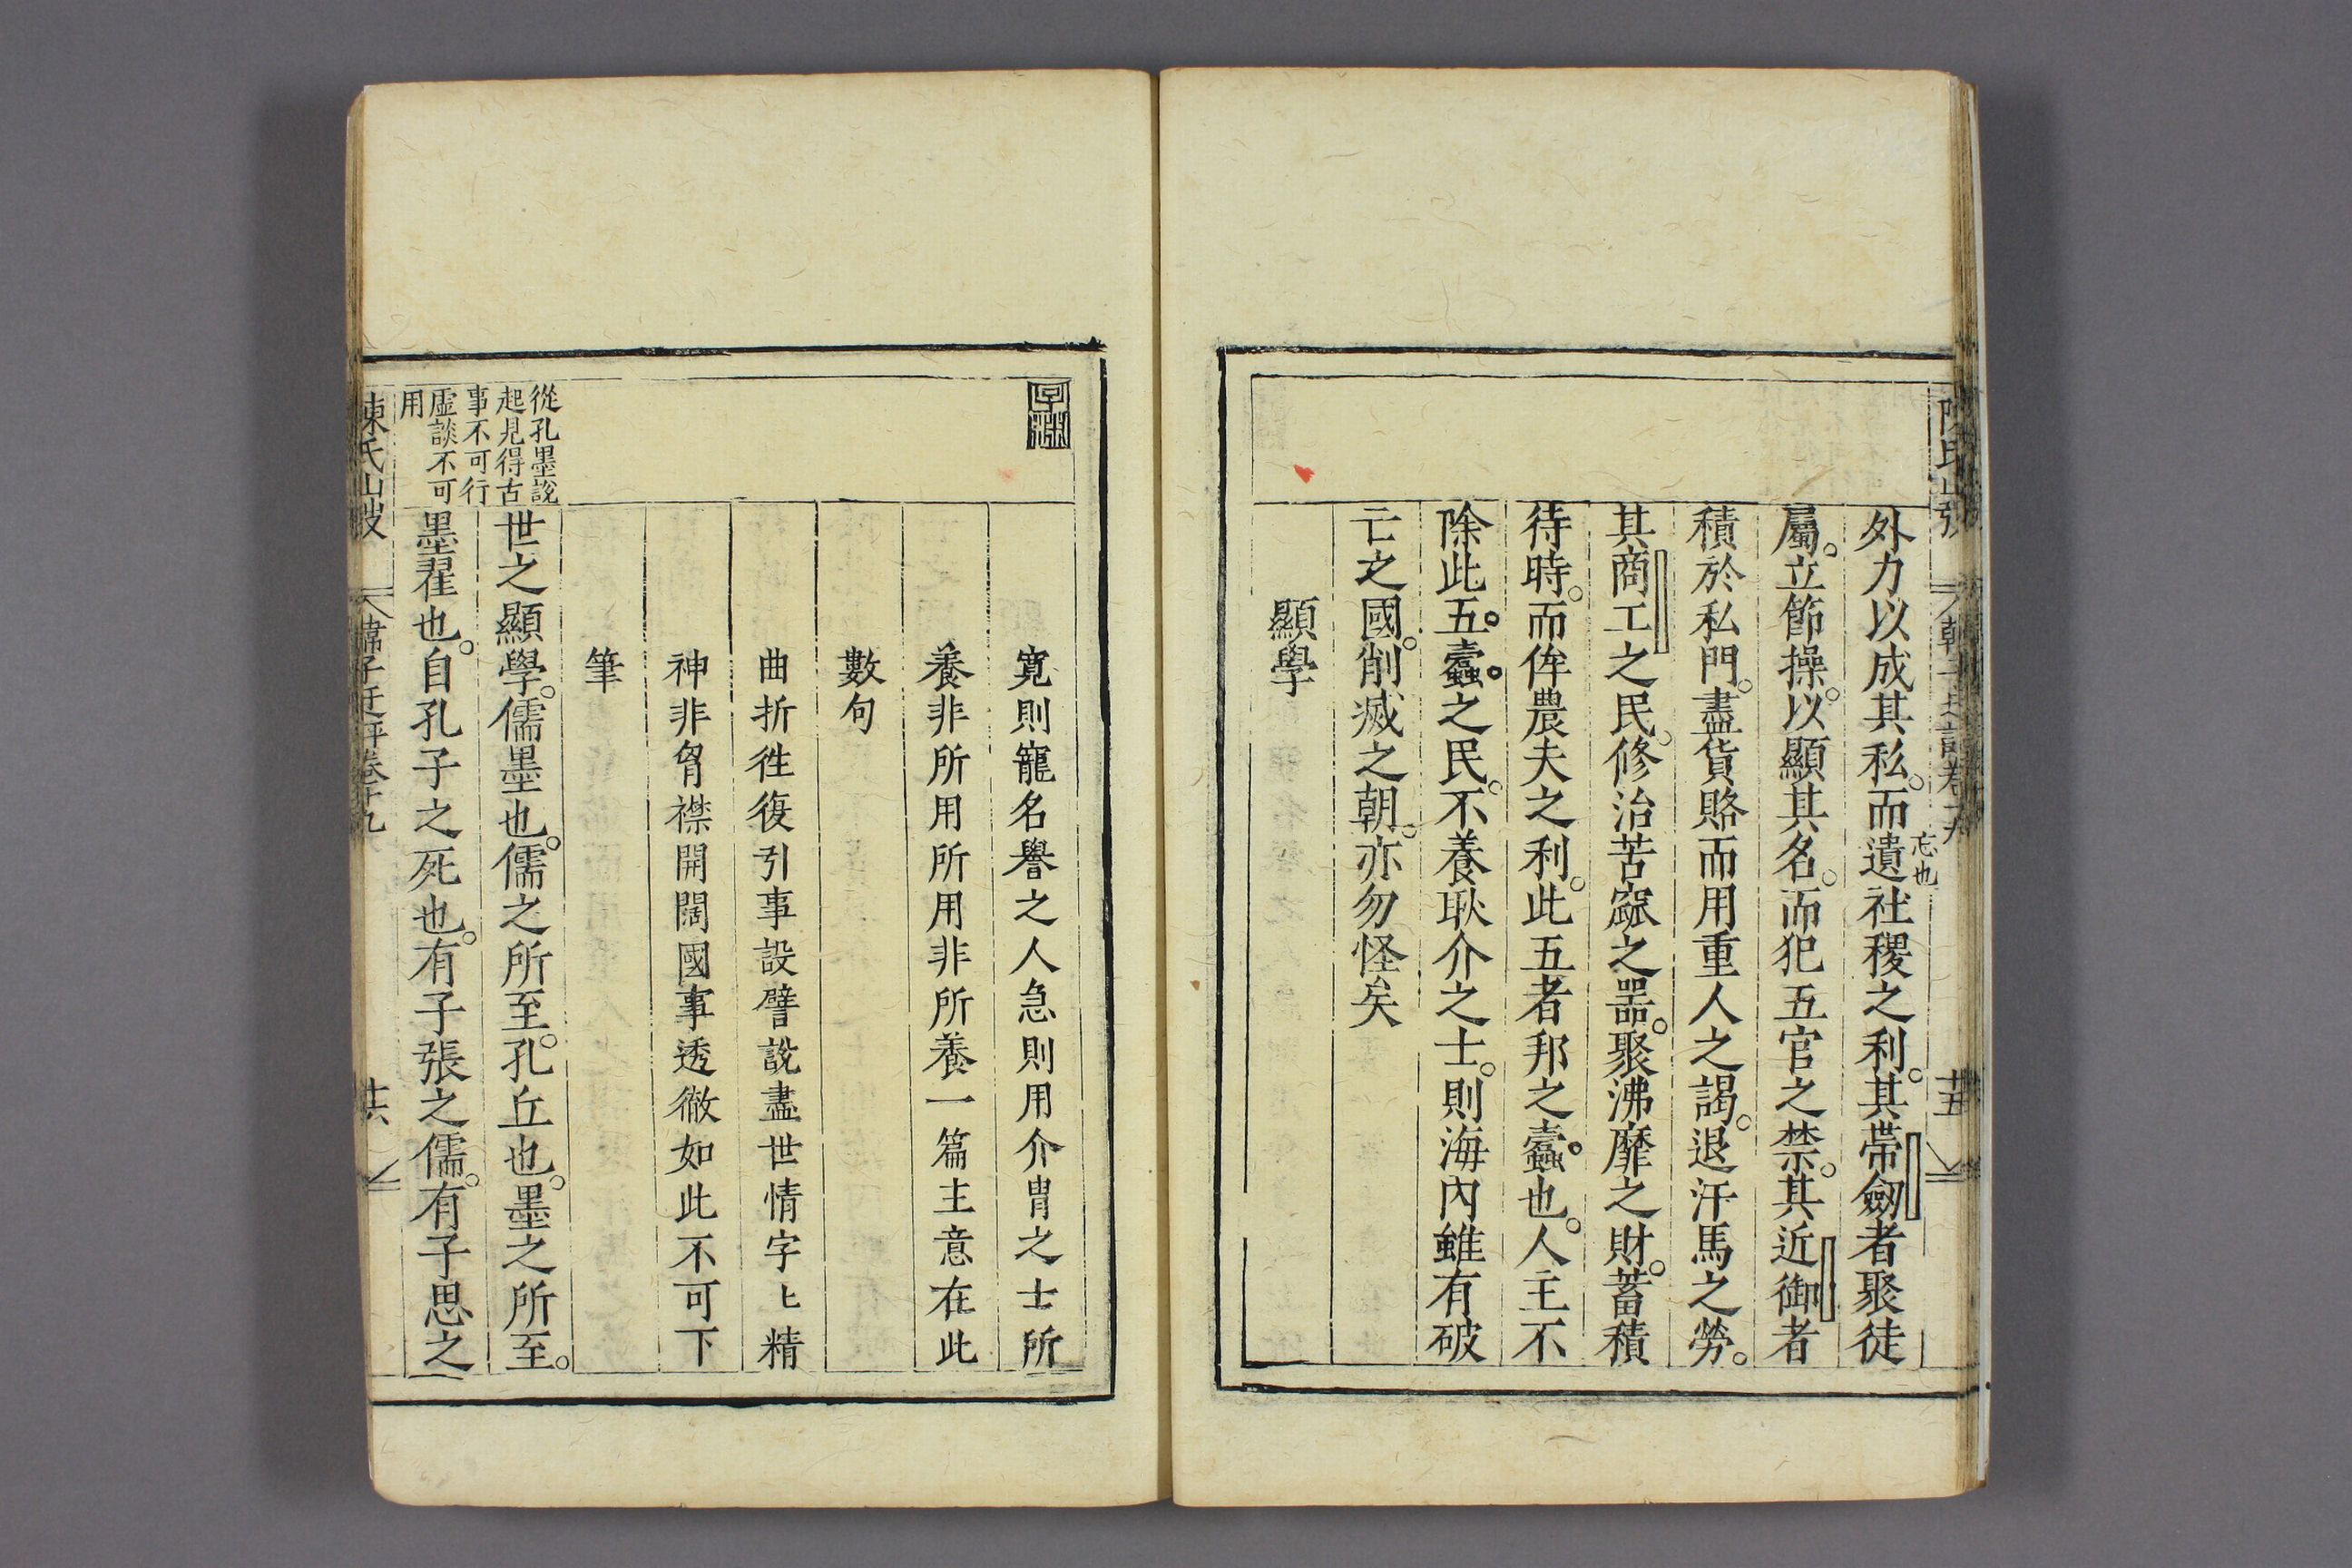 外力以成其私。而遺社稷之利。其帶劒者聚徒
忘也
屬。立節操。以顯其名。而犯五官之禁。其近御者
積於私門。盡貨賂而用重人之謁。退汗馬之勞。
其商工之民。修治苦窳之器。聚沸靡之財。蓄積
待時。而侔農夫之利。此五者邦之蠹也。人主不
除此五蠹之民。不養耿介之士。則海內雖有破
亡之國。削滅之朝。亦勿怪矣
顯學
寬則寵名譽之人急則用介胄之士所
養非所用所用非所養一篇主意在此
數句
曲折徃復引事設譬說盡世情字〻精
神非胷襟開闊國事透徹如此不可下
筆
從孔墨說
起見得古
事不可行
虛談不可
用
世之顯學。儒墨也。儒之所至。孔丘也。墨之所至。
墨翟也。自孔子之死也。有子張之儒。有子思之
陳氏山
韓子迂評卷十九
十六